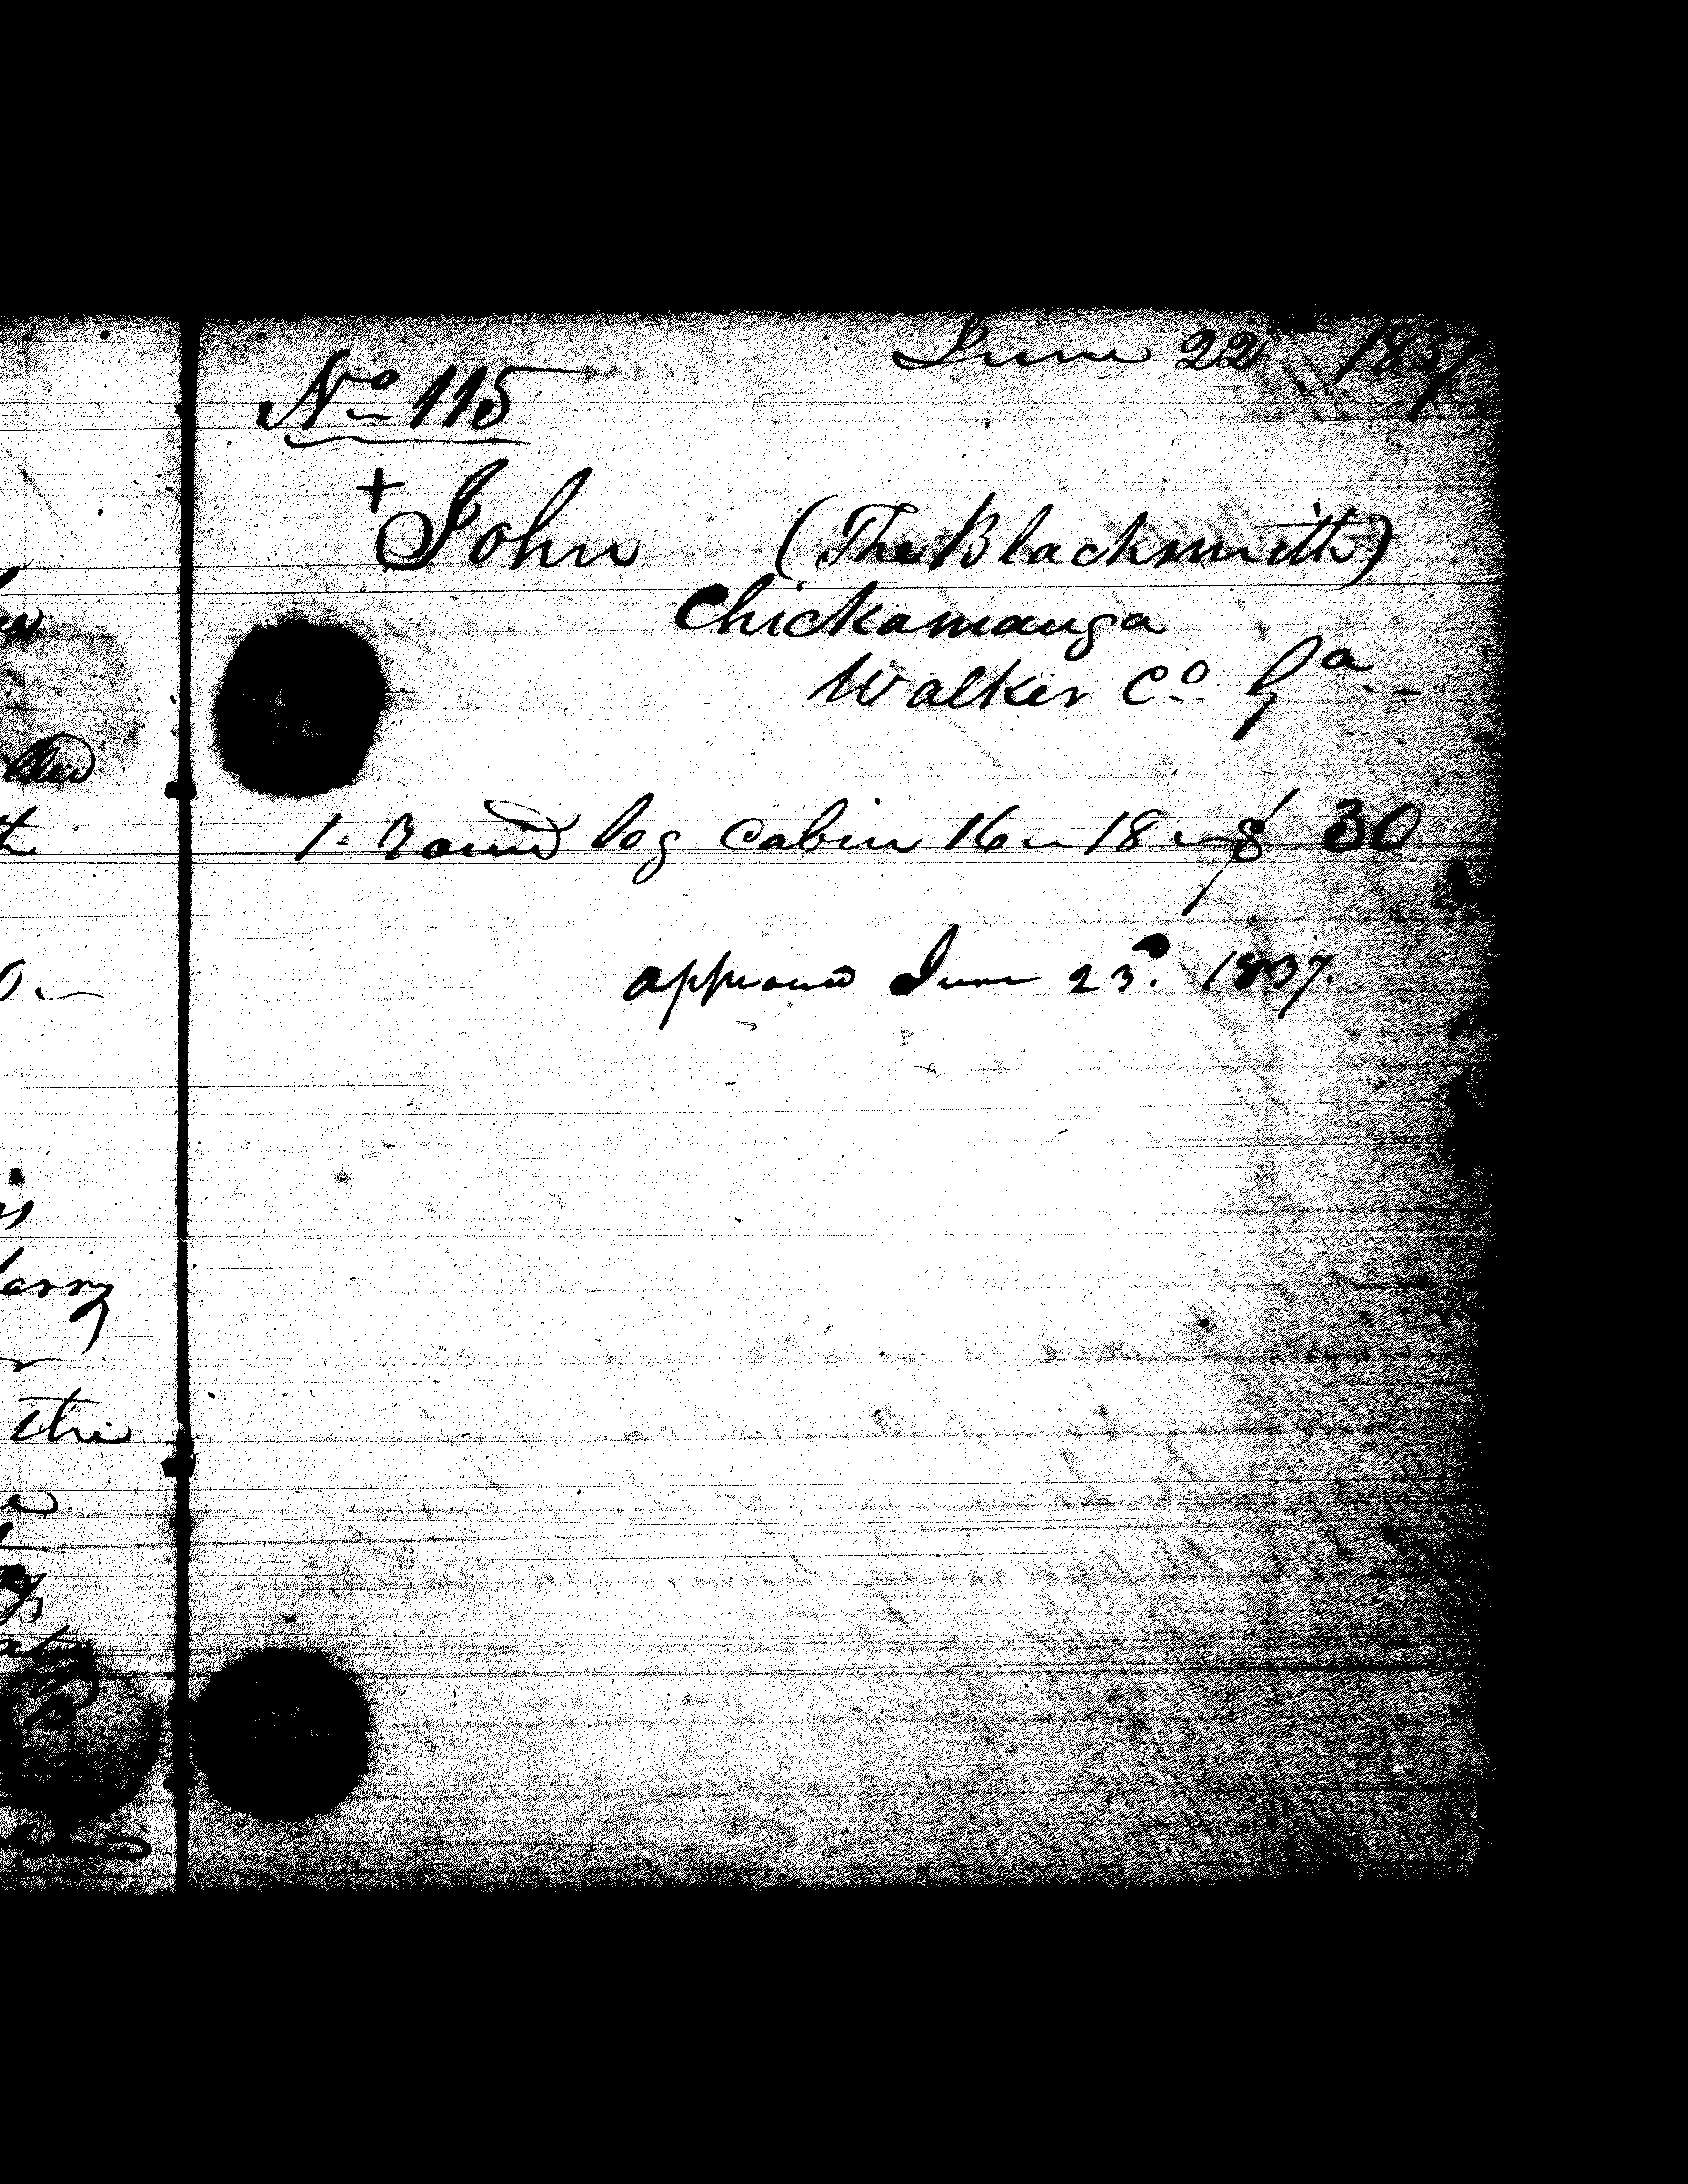 June 22 1837
No 115
+ John (The Blacksmith)
Chickamauga
Walker Co Ga
1. Round log cabin 16 - 18 - $ 30
approved June 23d. 1837.
arry
the